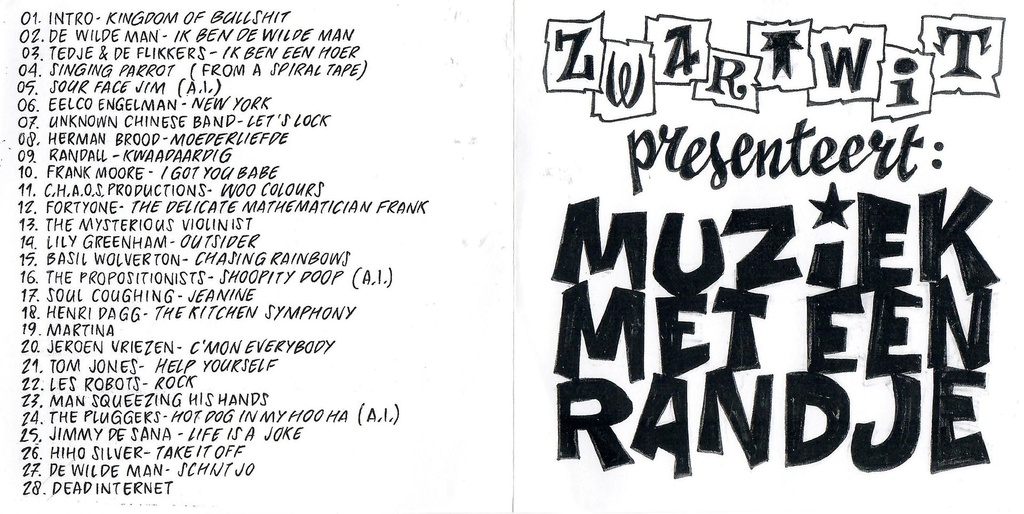 01. INTRO- KINGDOM OF BULLSHIT
02. DE WILDE MAN- IK BEN DE WILDE MAN
03. TEDJE & DE FLIKKERS- IK BEN EEN HOER
04. SINGING PARROT (FROM A SPIRAL TAPE)
05. SOUR FACE JIM (A.I.)
06. EELCO ENGELMAN- NEW YORK
07. UNKNOWN CHINESE BAND- LET'S LOCK
08. HERMAN BROOD- MOEDERLIEFDE
09. RANDALL - KWAADAARDIG
10. FRANK MOORE- I GOT YOU BABE
11. C.H.A.O.S. PRODUCTIONS- WOO COLOURS
12. FORTYONE- THE DELICATE MATHEMATICIAN FRANK
13. THE MYSTERIOUS VIOLINIST
14. LILY GREENHAM- OUTSIDER
15. BASIL WOLVERTON- CHASING RAINBOWS
16. THE PROPOSITIONISTS- SHOOPITY DOOP (A.I.)
17. SOUL COUGHING- JEANINE
18. HENRI DAGG- THE KITCHEN SYMPHONY
19. MARTINA
20. JEROEN VRIEZEN- C'MON EVERYBODY
21. TOM JONES- HELP YOURSELF
22. LES ROBOTS- ROCK
23. MAN SQUEEZING HIS HANDS
24. THE PLUGGERS- HOT DOG IN MY HOO HA (A.I.)
25. JIMMY DE SANA - LIFE IS A JOKE
26. HIHO SILVER- TAKE IT OFF
27. DE WILDE MAN- SCHIJT JO
28. DEAD INTERNET
ZWARTWiT
presenteert:
MUZiEK
MET EEN
RANDJE